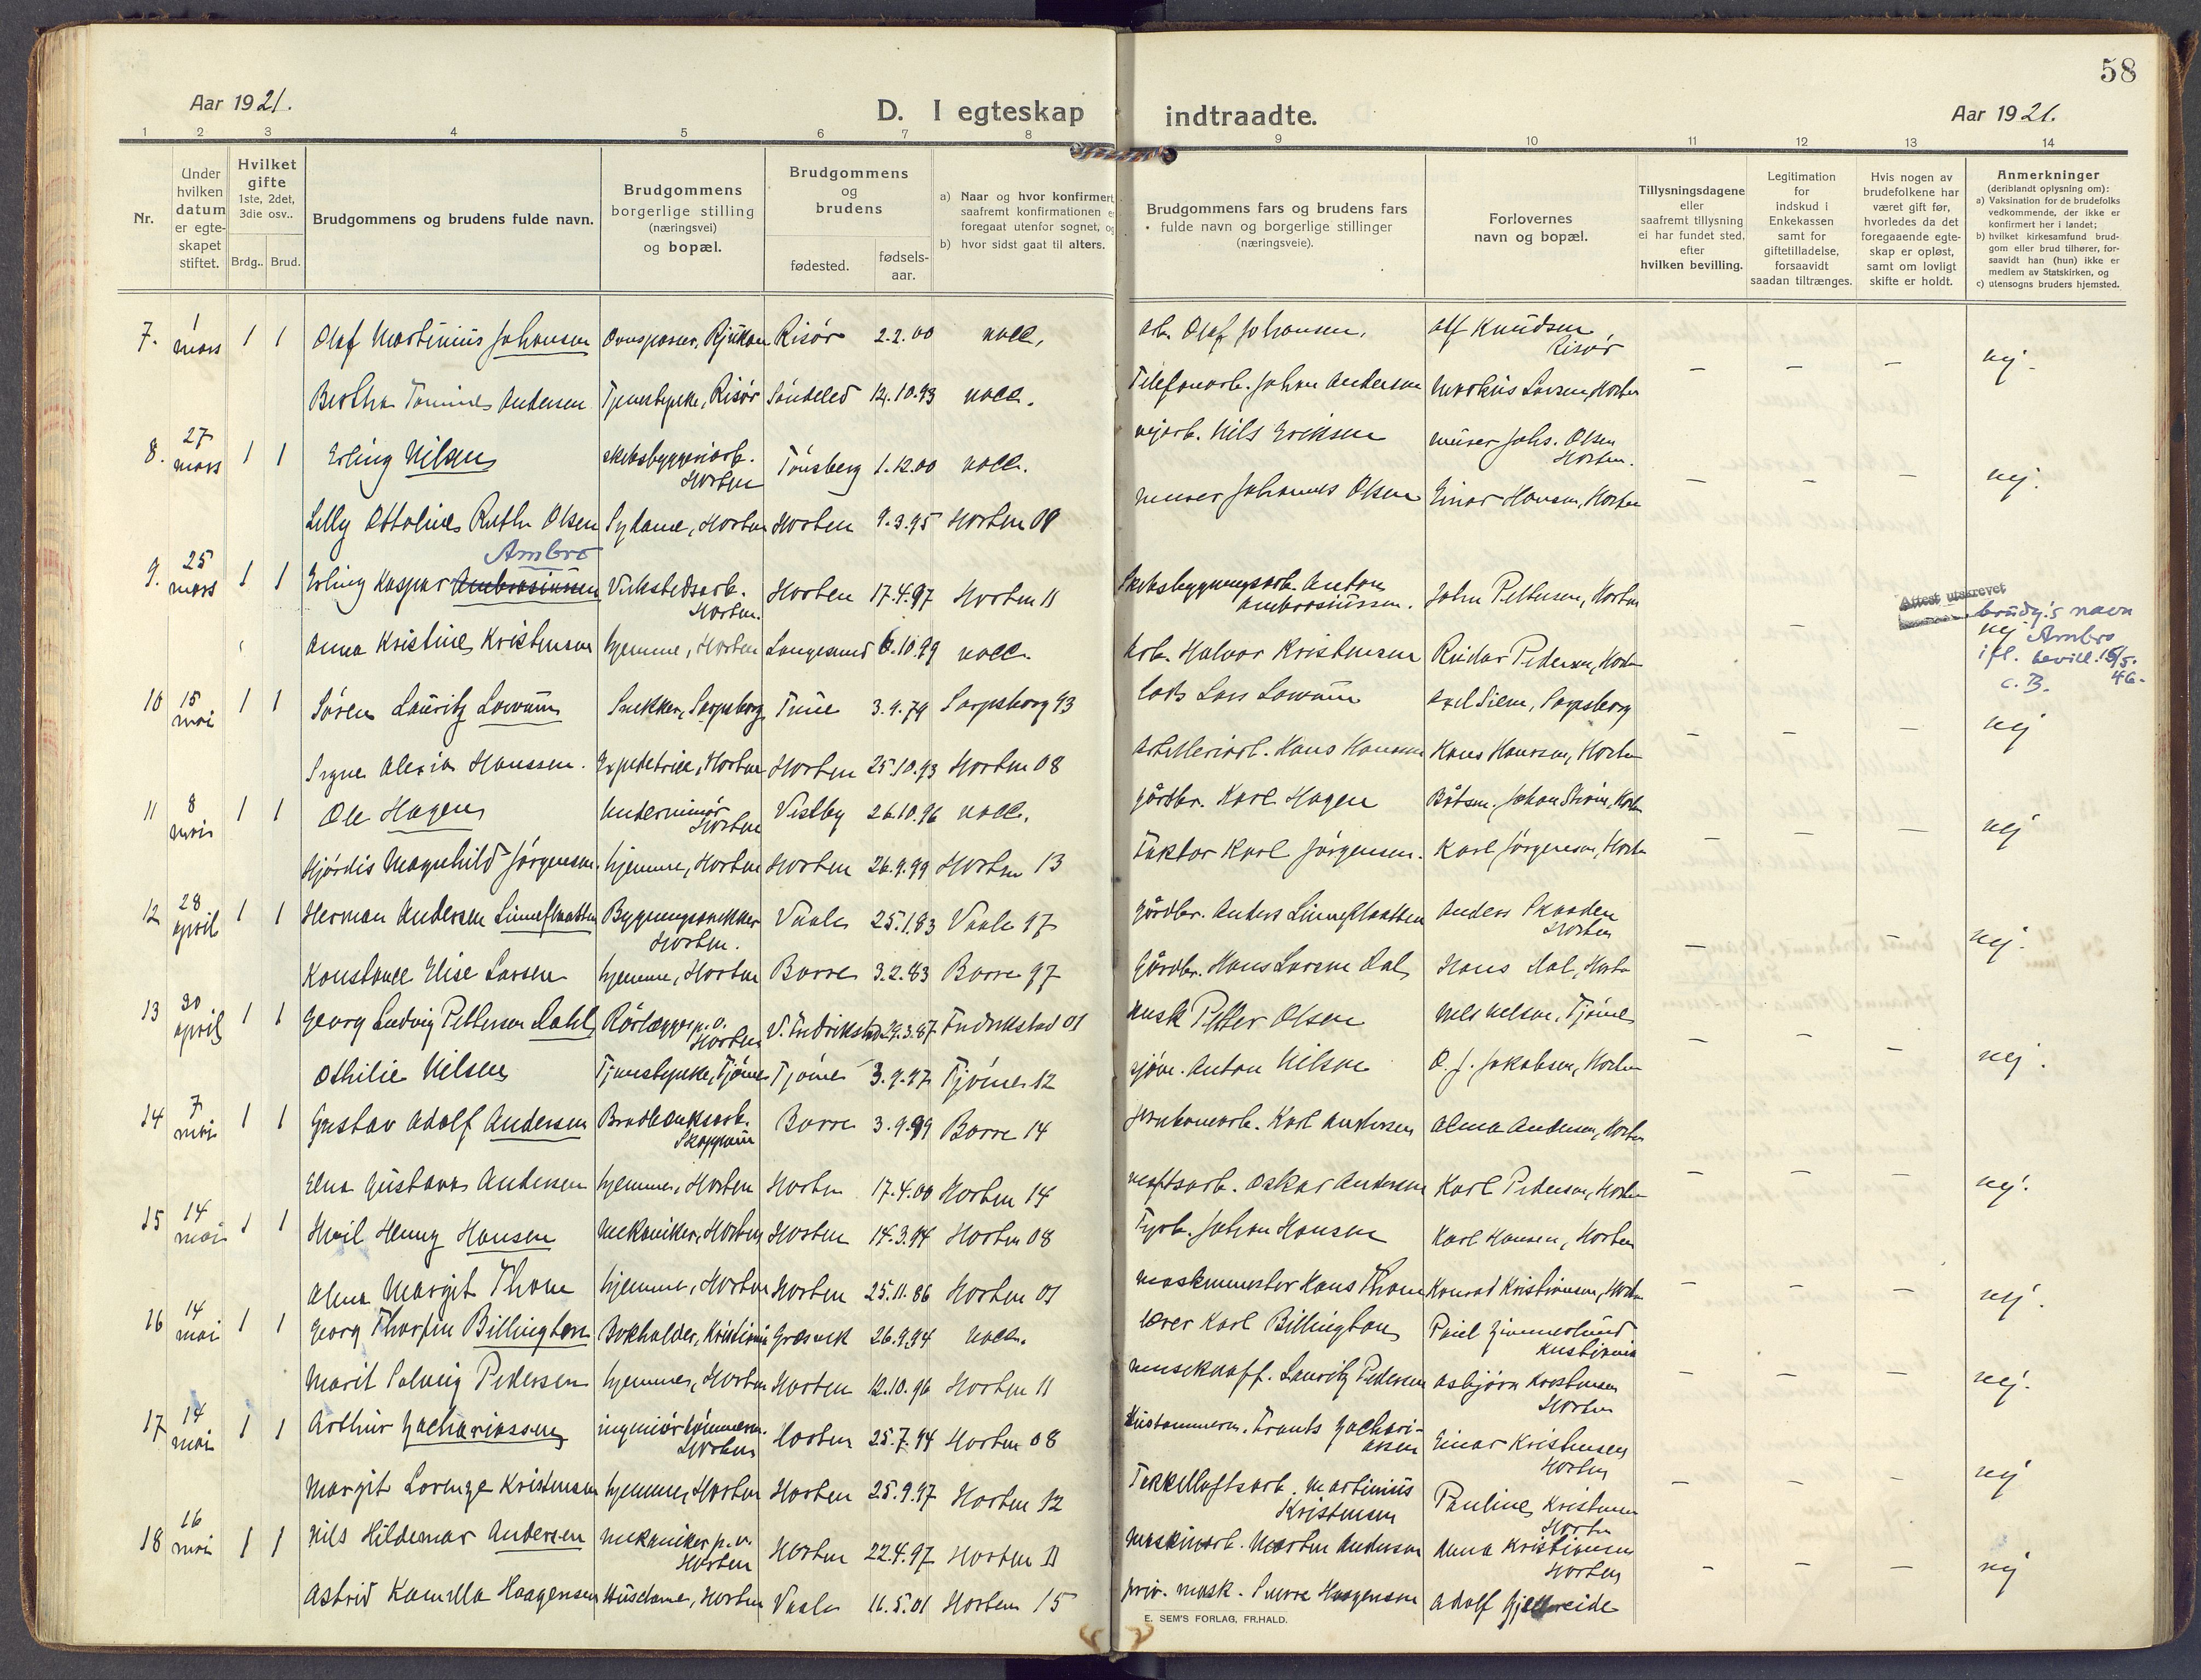 58
Aar 1921.
D. I egteskap indtraadte.
Aar 1921.
1 2 3 4 5 6 7 8 9 10 11 12 13 14
Nr.
Under hvilken datum er egte-skapet stiftet.
Hvilket gifte 1ste, 2det, 3die osv..
Brdg.. Brud.
Brudgommens og brudens fulde navn.
Brudgommens borgerlige stilling (næringsvei) og bopæl.
Brudgommens og brudens
fødested.
fødsels-aar.
a) Naar og hvor konfirmert
saafremt konfirmationen
foregaat utenfor sognet,
b) hvor sidst gaat til alters.
Brudgommens fars og brudens fars
fulde navn og borgerlige stillinger
(næringsveie).
Forlovernes
navn og bopæl.
Tillysningsdagene
eller
saafremt tillysning
ei har fundet sted,
efter
hvilken bevilling.
Legitimation
for
indskud i
Enkekassen
samt for
giftetilladelse,
forsaavidt
saadan tiltrænges.
Hvis nogen av
brudefolkene har
været gift før,
hvorledes da det
foregaaende egte-
skap er opløst,
samt om lovligt
skifte er holdt.
Anmerkninger
(deriblandt oplysning om):
a) Vaksination for de brudefolks
vedkommende, der ikke er
konfirmert her i landet;
b) hvilket kirkesamfund brud-
gom eller brud tilhører, for-
saavidt han (hun) ikke er
medlem av Statskirken, og
c) utensogns bruders hjemsted.
7. 1 mars 1 1 Olaf Martinius Johansen Ovnspasser, Rjukan Risør 2.2.00 vacc. arb. Olaf Johansen, Alf Knudsen, Risør — — — nej.
Bertha Tomine Andersen Tjenestepike, Risør Søndeled 12.10.93 vacc. Telefonarb. Johan Andersen Markus Larsen, Horten
8. 27 mars 1 1 Erling Nilsen skibsbyggeriarb. Horten Tønsberg 1.12.00 vacc. vejarb. Nils Eriksen murer Johs. Olsen Horten. — — — nej.
Lilly Ottoline Ruth Olsen Sydame, Horten Horten 9.3.95 Horten 09 murer Johannes Olsen Einar Hansen, Horten
Ambro
9. 25 mars 1 1 Erling Kaspar Ambrosiussen Verkstedsarb. Horten. Horten 17.4.97 Horten 11 Skibsbygningsarb. Anton Ambrosiussen. John Pettersen, Horten — Attest utskrevet
brudg.'s navn
nej Ambro
ifl. bevill. 15/5.
c. B. 46.
Anna Kristine Kristensen hjemme, Horten Langesund 6.10.99 vacc. Arb. Halvor Kristensen Reidar Pedersen, Horten
10 15 mai 1 1 Søren Lauritz Lowum Snekker, Sarpsborg Tune 3.9.79 Sarpsborg 93 lods Lars Lowum Axel Siem, Sarpsborg — — — nej
Signe Alexia Hanssen. Expeditrice, Horten Horten 25.10.93 Horten 08 Artilleriarb. Hans Hanssen Hans Hanssen, Horten
11 8 mai 1 1 Ole Hagen Underminør Horten Vestby 26.10.96 vacc. gårdbr. Karl Hagen Båtsm. Johan Strøm, Horten — — — nej
Hjørdis Magnhild Jørgensen. hjemme, Horten Horten 26.9.99 Horten 13 Faktor Karl Jørgensen. Karl Jørgensen, Horten
12 28 april 1 1 Herman Andersen Linneflaatten Bygningssnekker Horten. Vaale 25.1.83 Vaale 97 gårdbr. Anders Linneflaatten Anders Skaaden Horten — — — nej.
Konstance Elise Larsen hjemme, Horten Borre 3.2.83 Borre 97 Gårdbr. Hans Larsen Dal Hans Dal, Horten
13 30 april 1 1 Georg Ludvig Pettersen Dahl Rørlægger p.v. Horten V. Fredrikstad 29.3.87 Fredrikstad 01 Musk Petter Olsen Nels Nelson, Tjøme — — — nej.
Othilie Nilsen Tjenestepike, Tjøme Tjøme 3.9.97 Tjøme 12 sjøm. Anton Nilsen O. J. Jakobsen, Horten
14 7 mai 1 1 Gustav Adolf Andersen Bradbænksarb. Skoppum Borre 3.9.99 Borre 14 Jernbanearb. Karl Andersen Alma Andersen, Horten
Elna Gustava Andersen hjemme, Horten Horten 17.4.00 Horten 14 verftsarb. Oskar Andersen Karl Pedersen, Horten — — — nej.
15 14 mai 1 1 Emil Henry Hansen Mekaniker, Horten Horten 14.3.94 Horten 08 Fyrb. Johan Hansen Karl Hansen, Horten
Alma Margit Thom hjemme, Horten Horten 25.11.86 Horten 01 maskinmester Hans Thom Konrad Kristiansen, Horten — — — nej.
16 14 mai 1 1 Georg Thorfin Billington Bokholder, Kristiania Græsvik 26.9.94 vacc. lærer Karl Billington Paul Zimmerlund Kristiania
Marit Solveig Pedersen hjemme, Horten Horten 12.10.96 Horten 11 musikuoff. Lauritz Pedersen Asbjørn Kristensen Horten — — — nej.
17 14 mai 1 1 Arthur Zachariassen ingeniørtømmerm. Horten Horten 25.7.94 Horten 08 Hustømmerm. Frants Zachari-assen Einar Kristensen Horten — — — nej
Margit Lorenze Kristensen hjemme, Horten Horten 25.9.97 Horten 12 Takkelloftsarb. Martinius Kristensen Pauline Kristensen Horten
18 16 mai 1 1 Nils Hildemar Andersen mekaniker p.v. Horten Horten 22.4.97 Horten 11 Maskinarb. Morten Andersen Anna Kristiansen Horten — — — nej
Astrid Kamilla Haagensen Husdame, Horten Vaale 16.5.01 Horten 15 priv. mask. Sverre Haagensen Adolf
E. SEM'S FORLAG, FR.HALD.